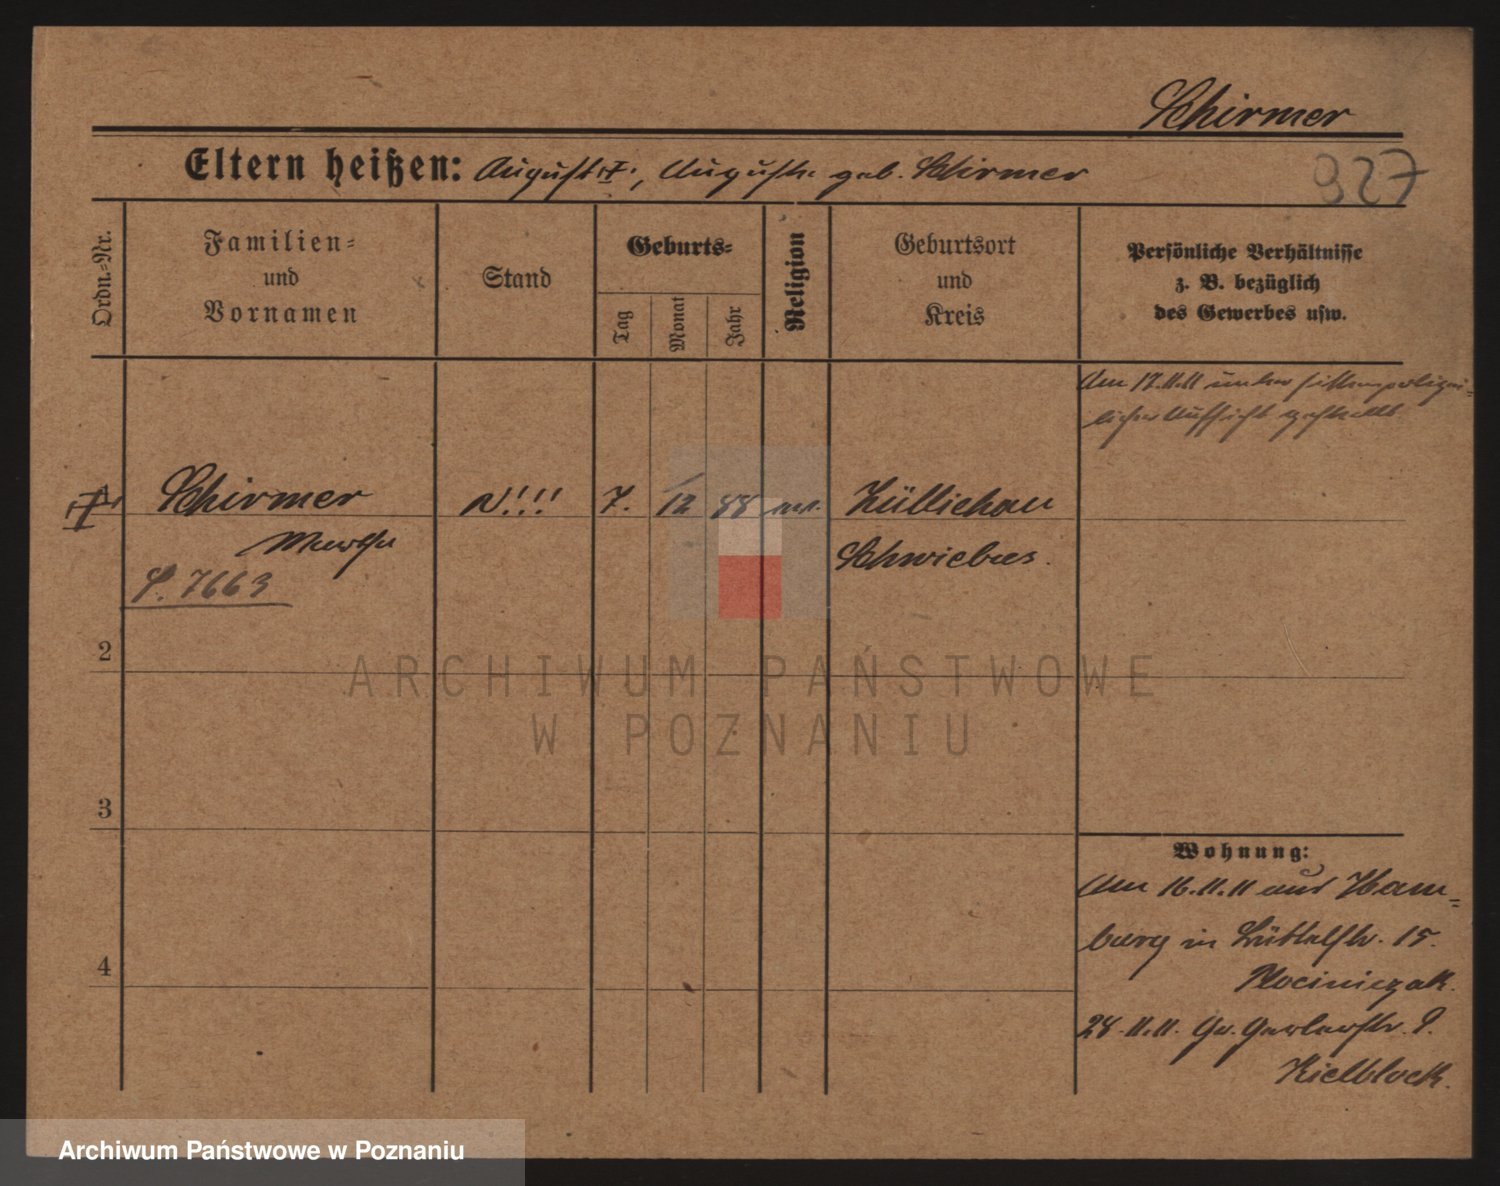 Schirmer
Eltern heißen: August II, Auguste geb. Schirmer
927
Ordn.=Nr.
Familien=
und
Vornamen
Stand
Geburts=
Tag
Monat
Jahr
Religion
Geburtsort
und
Kreis
Persönliche Verhältnisse
z. B. bezüglich
des Gewerbes usw.
Am 17.11.11 unter sittenpolizei=
licher Aufsicht gestellt.
Schirmer
N!!!
7.
12
88
Züllichau
Martha
Schwiebus.
S. 7663
2
3
4
Wohnung:
Am 16.11.11 aus Ham=
burg in 15.
Kociniczak.
28.11.11. Gr. Gerberstr. 9.
Kielblock.
ARCHIWUM PAŃSTWOWE
W POZNANIU
Archiwum Państwowe w Poznaniu